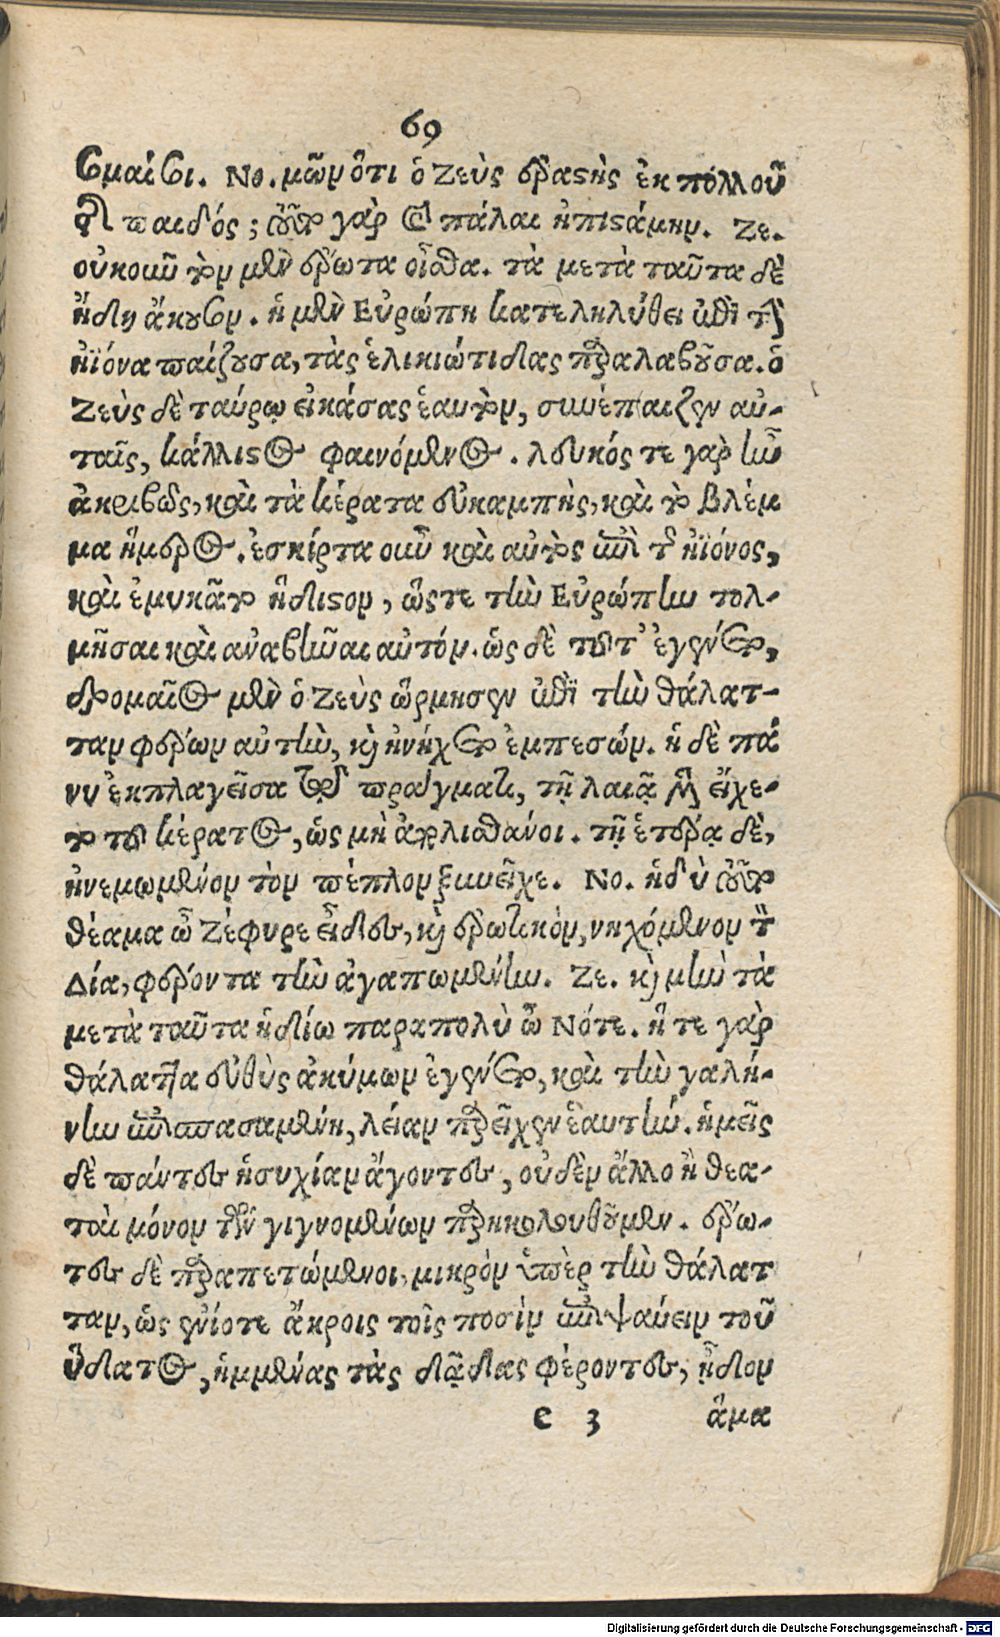 69
σμαί σοι. Νο. μῶν ὅτι ὁ Ζεὺς ἐραστὴς ἐκ πολλοῦ
τῆς παιδός; τοῦτο γὰρ καὶ πάλαι ἠπιστάμην. Ζε.
οὐκοῦν τὸν μὲν ἔρωτα οἶσθα. τὰ μετὰ ταῦτα δὲ
ἤδη ἄκουσον. ἡ μὲν Εὐρώπη κατεληλύθει ἐπὶ τὴν
ἠϊόνα παίζουσα, τὰς ἑλικιώτιδας παραλαβοῦσα. ὁ
Ζεὺς δὲ ταύρῳ εἰκάσας ἑαυτὸν, συνέπαιζεν αὐ-
ταῖς, κάλλιστος φαινόμενος. λευκός τε γὰρ ἦν
ἀκριβῶς, καὶ τὰ κέρατα εὐκαμπὴς, καὶ τὸ βλέμ
μα ἥμερος. ἐσκίρτα οὖν καὶ αὐτὸς ἐπὶ τῆς ἠϊόνος,
καὶ ἐμυκᾶτο ἥδιστον, ὥστε τὴν Εὐρώπην τολ-
μῆσαι καὶ ἀναβῆναι αὐτόν. ὡς δὲ τοῦτ' ἐγένετο,
δρομαῖος μὲν ὁ Ζεὺς ὥρμησεν ἐπὶ τὴν θάλατ-
ταν φέρων αὐτὴν, καὶ ἐνήχετο ἐμπεσών. ἡ δὲ πά
νυ ἐκπλαγεῖσα τῷ πράγματι, τῇ λαιᾷ μὲν εἴχε-
το τοῦ κέρατος, ὡς μὴ ἀπολισθάνοι. τῇ ἑτέρᾳ δὲ,
ἠνεμωμένον τὸν πέπλον ξυνεῖχε. Νο. ἡδὺ τοῦτο
θέαμα ὦ Ζέφυρε εἶδες, καὶ ἐρωτικὸν, νηχόμενον τὸν
Δία, φέροντα τὴν ἀγαπωμένην. Ζε. καὶ μὴν τὰ
μετὰ ταῦτα ἡδίω παραπολὺ ὦ Νότε. ἥ τε γὰρ
θάλαττα εὐθὺς ἀκύμων ἐγένετο, καὶ τὴν γαλή-
νην ἐπισπασαμένη, λείαν παρεῖχεν ἑαυτήν. ἡμεῖς
δὲ πάντες ἡσυχίαν ἄγοντες, οὐδὲν ἄλλο ἢ θεα-
ταὶ μόνον τῶν γιγνομένων παρηκολουθοῦμεν. ἔρω-
τες δὲ παραπετώμενοι, μικρὸν ὑπὲρ τὴν θάλατ
ταν, ὡς ἐνίοτε ἄκροις τοῖς ποσὶν ἐπιψαύειν τοῦ
ὕδατος, ἡμμένας τὰς δᾷδας φέροντες, ᾖδον
e 3 ἅμα
Digitalisierung gefördert durch die Deutsche Forschungsgemeinschaft - DFG